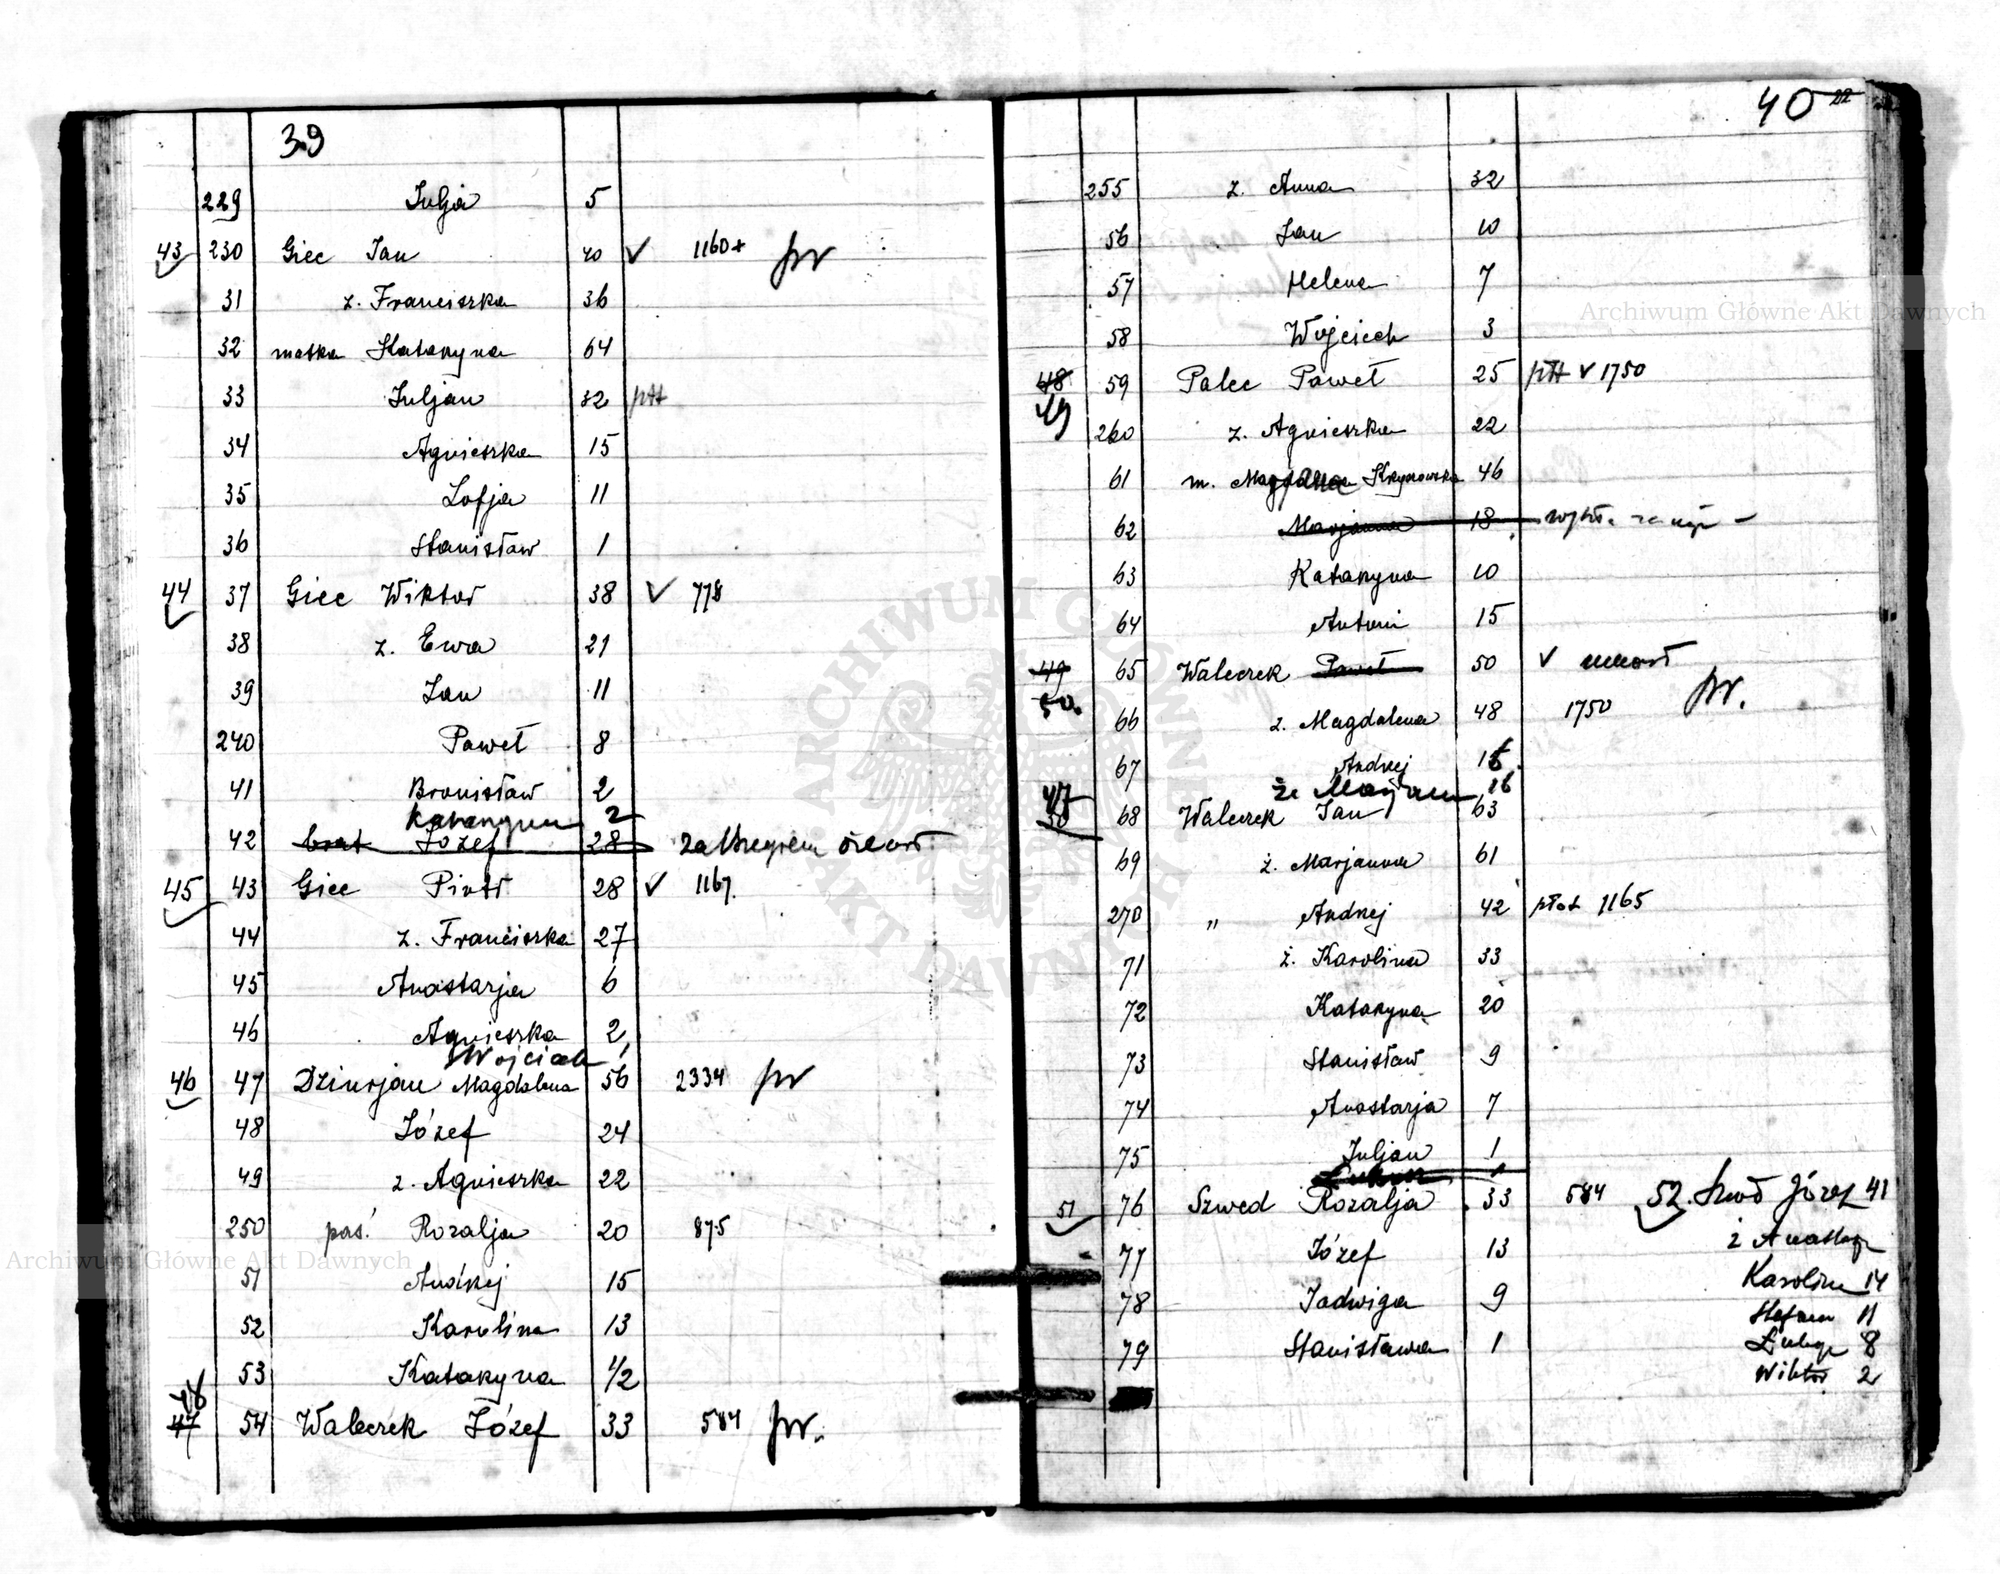 39
229 Julja 5
43 230 Giec Jan 40 V 1160+ pr
31 z. Franciszka 36
32 matka Katarzyna 64
33 Juljan 32 ptt
34 Agnieszka 15
35 Zofja 11
36 Stanisław 1
44 37 Giec Wiktor 38 V 778
38 z. Ewa 21
39 Jan 11
240 Paweł 8
41 Bronisław 2
Katarzyna 2
42 brat Józef 28
45 43 Giec Piotr 28 V 1167.
44 z. Franciszka 27
45 Anastazja 6
46 Agnieszka 2
Wojciech 1
46 47 Dziurjan Magdalena 56 2334 pr
48 Józef 24
49 z. Agnieszka 22
250 pas. Rozalja 20 875
51 Andrzej 15
52 Karolina 13
53 Katarzyna 1/2
48
47 54 Waleczek Józef 33 584 pr.
40 22
255 z. Anna 32
56 Jan 10
57 Helena 7
58 Wojciech 3
48 59 Palec Paweł 25 ptt V 1750
49
260 z. Agnieszka 22
61 m. Magdalena 46
62 Marjanna 18
63 Katarzyna 10
64 Antoni 15
49 65 Waleczek Paweł 50 V umarł
50. 66 z. Magdalena 48 1750 pr.
67 Andrzej
że Marjann 16
47 68 Waleczek Jan 63
50
69 ż. Marjanna 61
270 „ Andrzej 42 płat 1165
71 ż. Karolina 33
72 Katarzyna 20
73 Stanisław 9
74 Anastazja 7
75 Juljan 1
51 76 Szwed Rozalja 33 584 52. Józef 41
77 Józef 13 ż
78 Jadwiga 9 Karolina 14
Stefan 11
79 Stanisława 1 8
Wiktor 2
Archiwum Główne Akt Dawnych
Archiwum Główne Akt Dawnych
ARCHIWUM GŁÓWNE AKT DAWNYCH